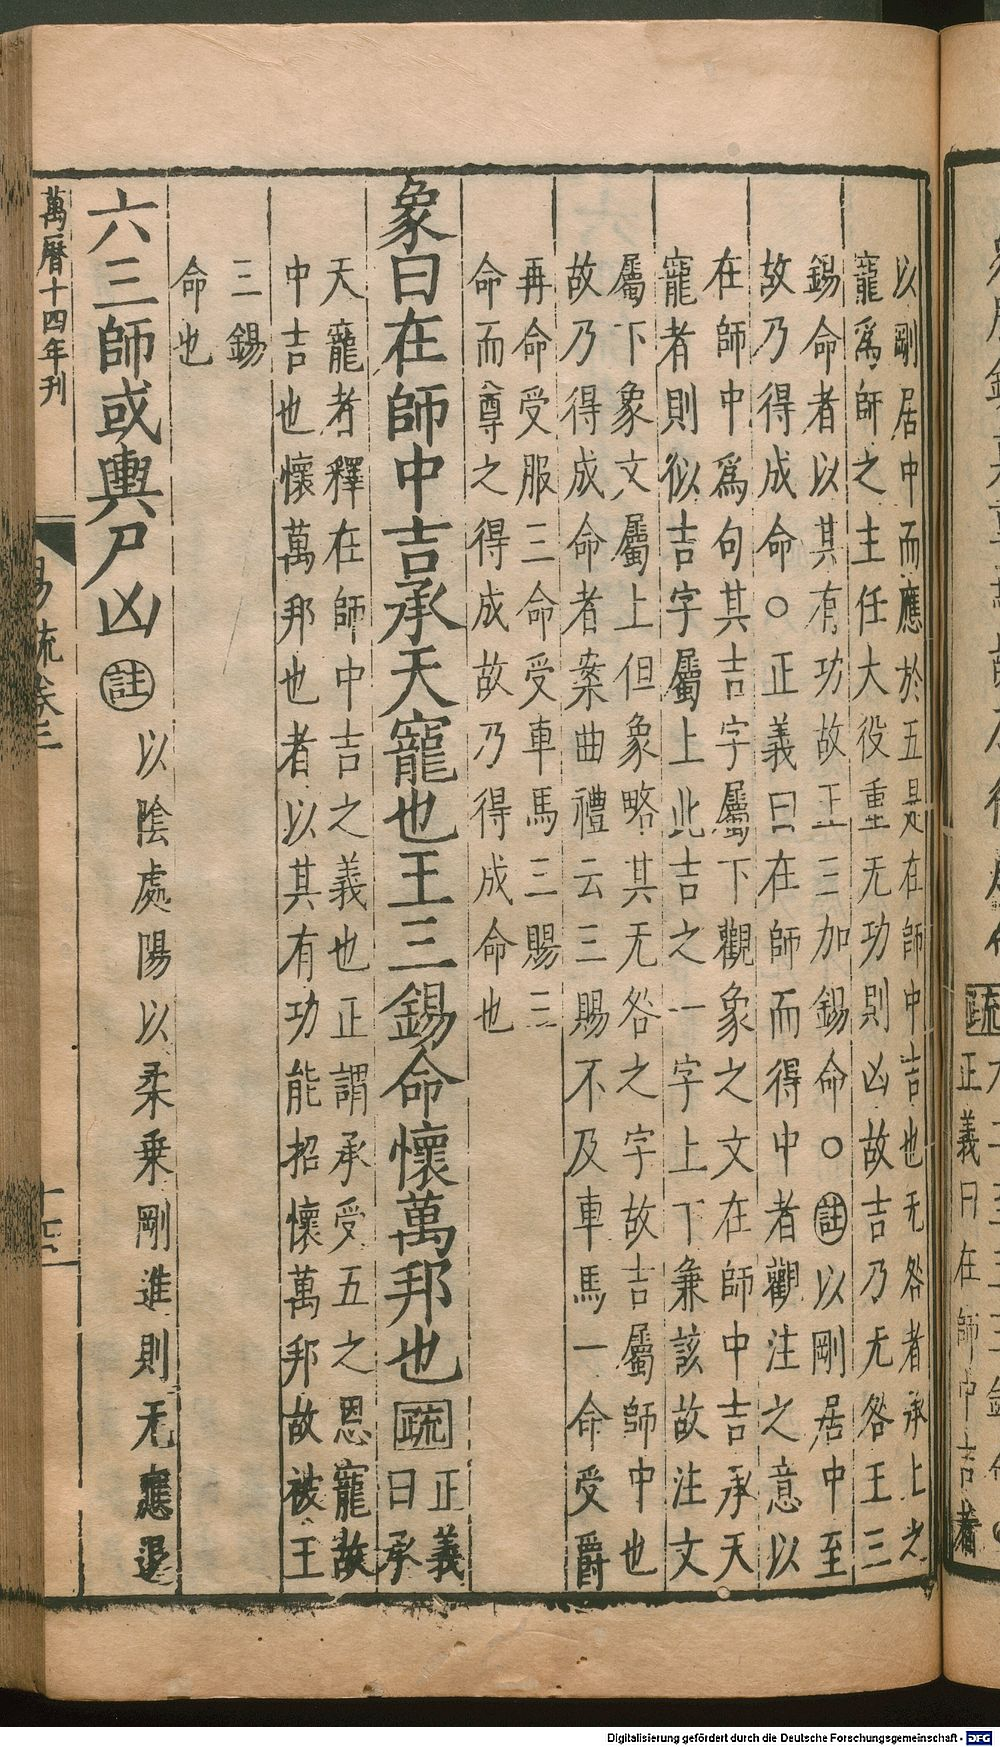 以剛居中而應於五是在師中吉也无咎者承上之
寵爲師之主任大役重无功則凶故吉乃无咎王三
錫命者以其有功故王三加錫命○註以剛居中至
故乃得成命○正義曰在師而得中者觀注之意以
在師中爲句其吉字屬下觀象之文在師中吉承天
寵者則似吉字屬上此吉之一字上下兼該故注文
屬下象文屬上但象略其无咎之字故吉屬師中也
故乃得成命者案曲禮云三賜不及車馬一命受爵
再命受服三命受車馬三賜三
命而尊之得成故乃得成命也
象曰在師中吉承天寵也王三錫命懷萬邦也疏正義
曰承
天寵者釋在師中吉之義也正謂承受五之恩寵故
中吉也懷萬邦也者以其有功能招懷萬邦故被王
三錫
命也
六三師或輿尸凶註以陰處陽以柔乗剛進則无應退
萬曆十四年刊
易疏卷三
正義曰在師中吉者
Digitalisierung gefördert durch die Deutsche Forschungsgemeinschaft - DFG